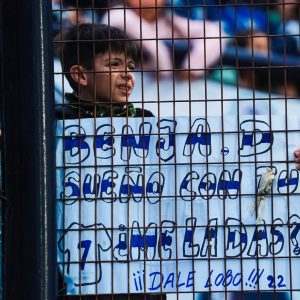 BENJA. D
SUEÑO CON TU
7 ¡ME LA DAS?
¡¡¡DALE LOBO!!! 22